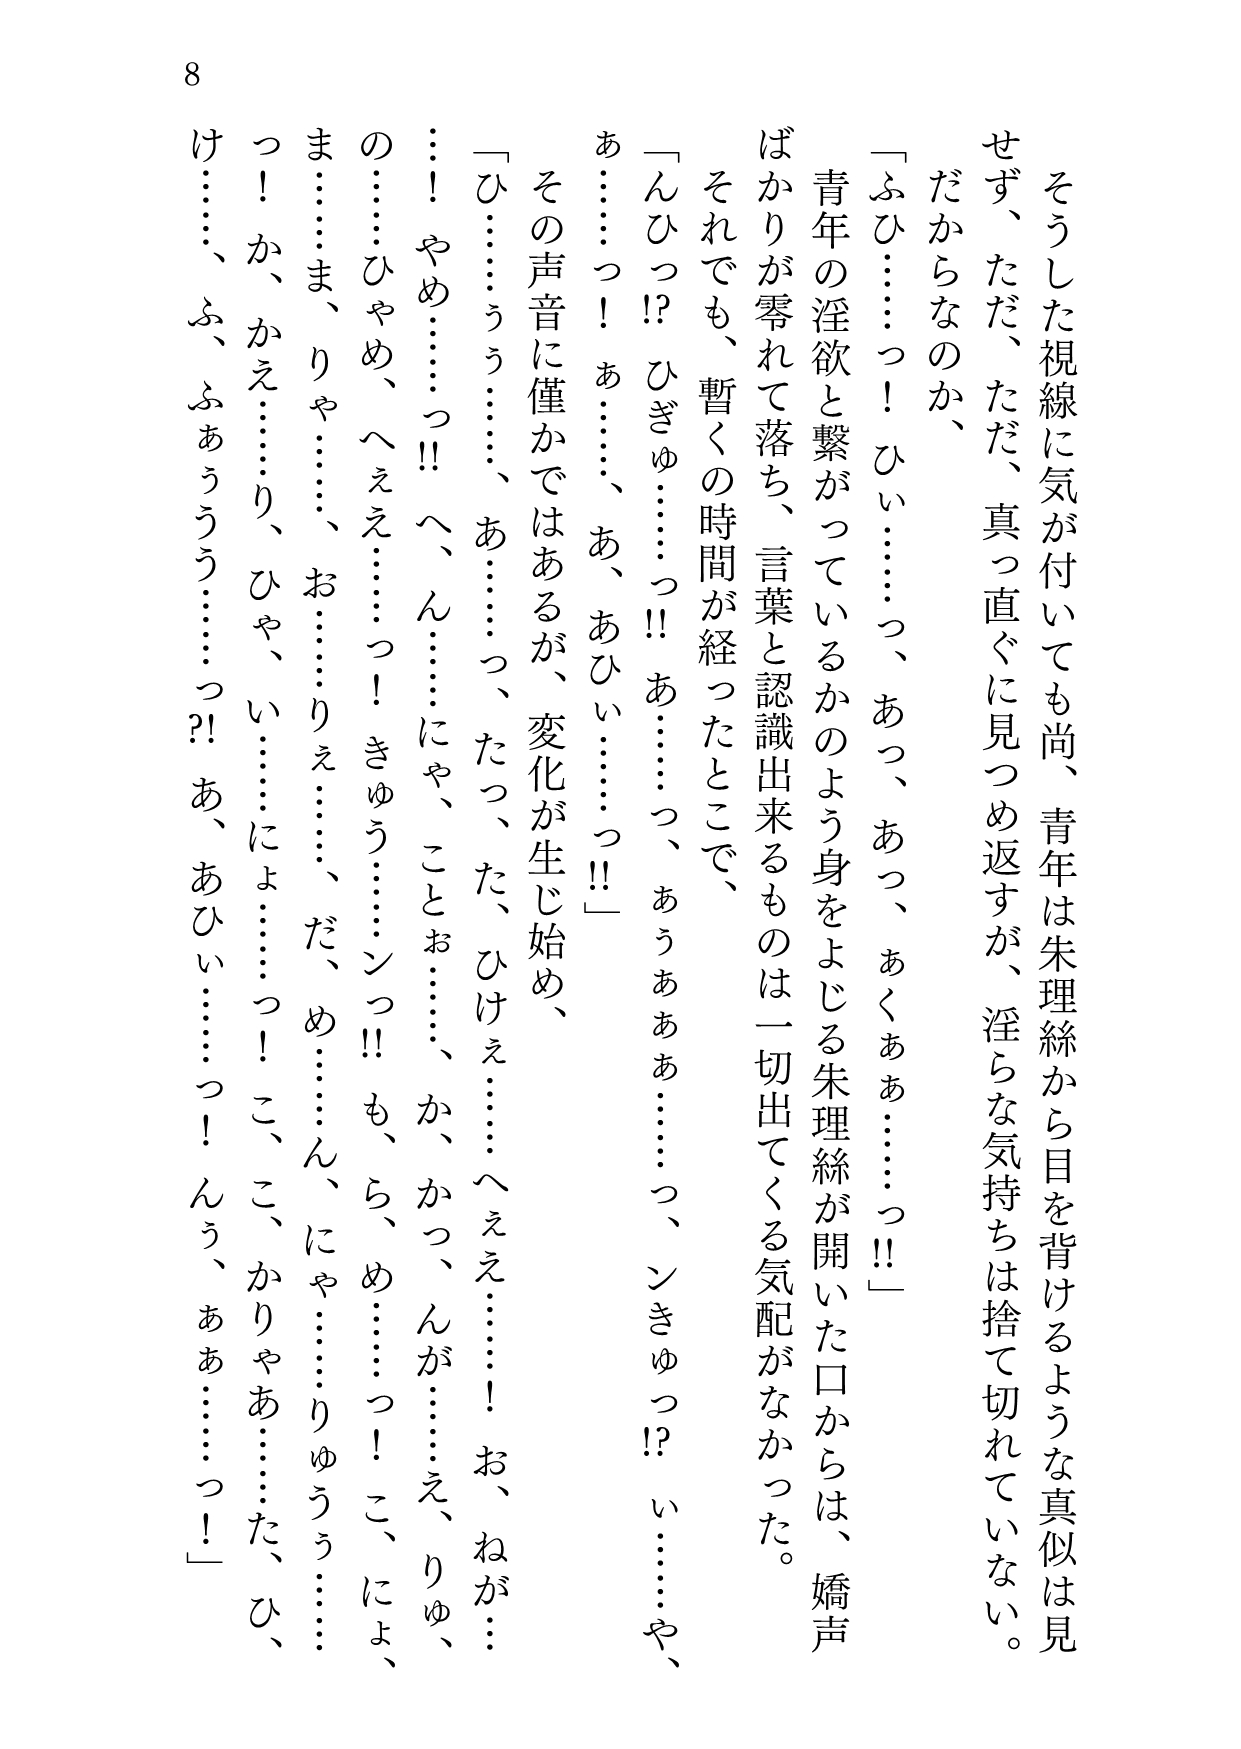 8
　そうした視線に気が付いても尚、青年は朱理絲から目を背けるような真似は見
せず、ただ、ただ、真っ直ぐに見つめ返すが、淫らな気持ちは捨て切れていない。
　だからなのか、
「ふひ……っ！　ひぃ……っ、あっ、あっ、ぁくぁぁ……っ!!」
　青年の淫欲と繋がっているかのよう身をよじる朱理絲が開いた口からは、嬌声
ばかりが零れて落ち、言葉と認識出来るものは一切出てくる気配がなかった。
　それでも、暫くの時間が経ったとこで、
「んひっ!?　ひぎゅ……っ!!　あ……っ、ぁぅぁぁぁ……っ、ンきゅっ!?　ぃ……や、
ぁ……っ！　ぁ……、あ、あひぃ……っ!!」
　その声音に僅かではあるが、変化が生じ始め、
「ひ……ぅぅ……、あ……っ、たっ、た、ひけぇ……へぇえ……！　お、ねが…
…！　やめ……っ!!　へ、ん……にゃ、ことぉ……、か、かっ、んが……え、りゅ、
の……ひゃめ、へぇえ……っ！　きゅう……ンっ!!　も、ら、め……っ！　こ、にょ、
ま……ま、りゃ……、お……りぇ……、だ、め……ん、にゃ……りゅうぅ……
っ！　か、かえ……り、ひゃ、い……にょ……っ！　こ、こ、かりゃあ……た、ひ、
け……、ふ、ふぁぅうう……っ?!　あ、あひぃ……っ！　んぅ、ぁぁ……っ！」